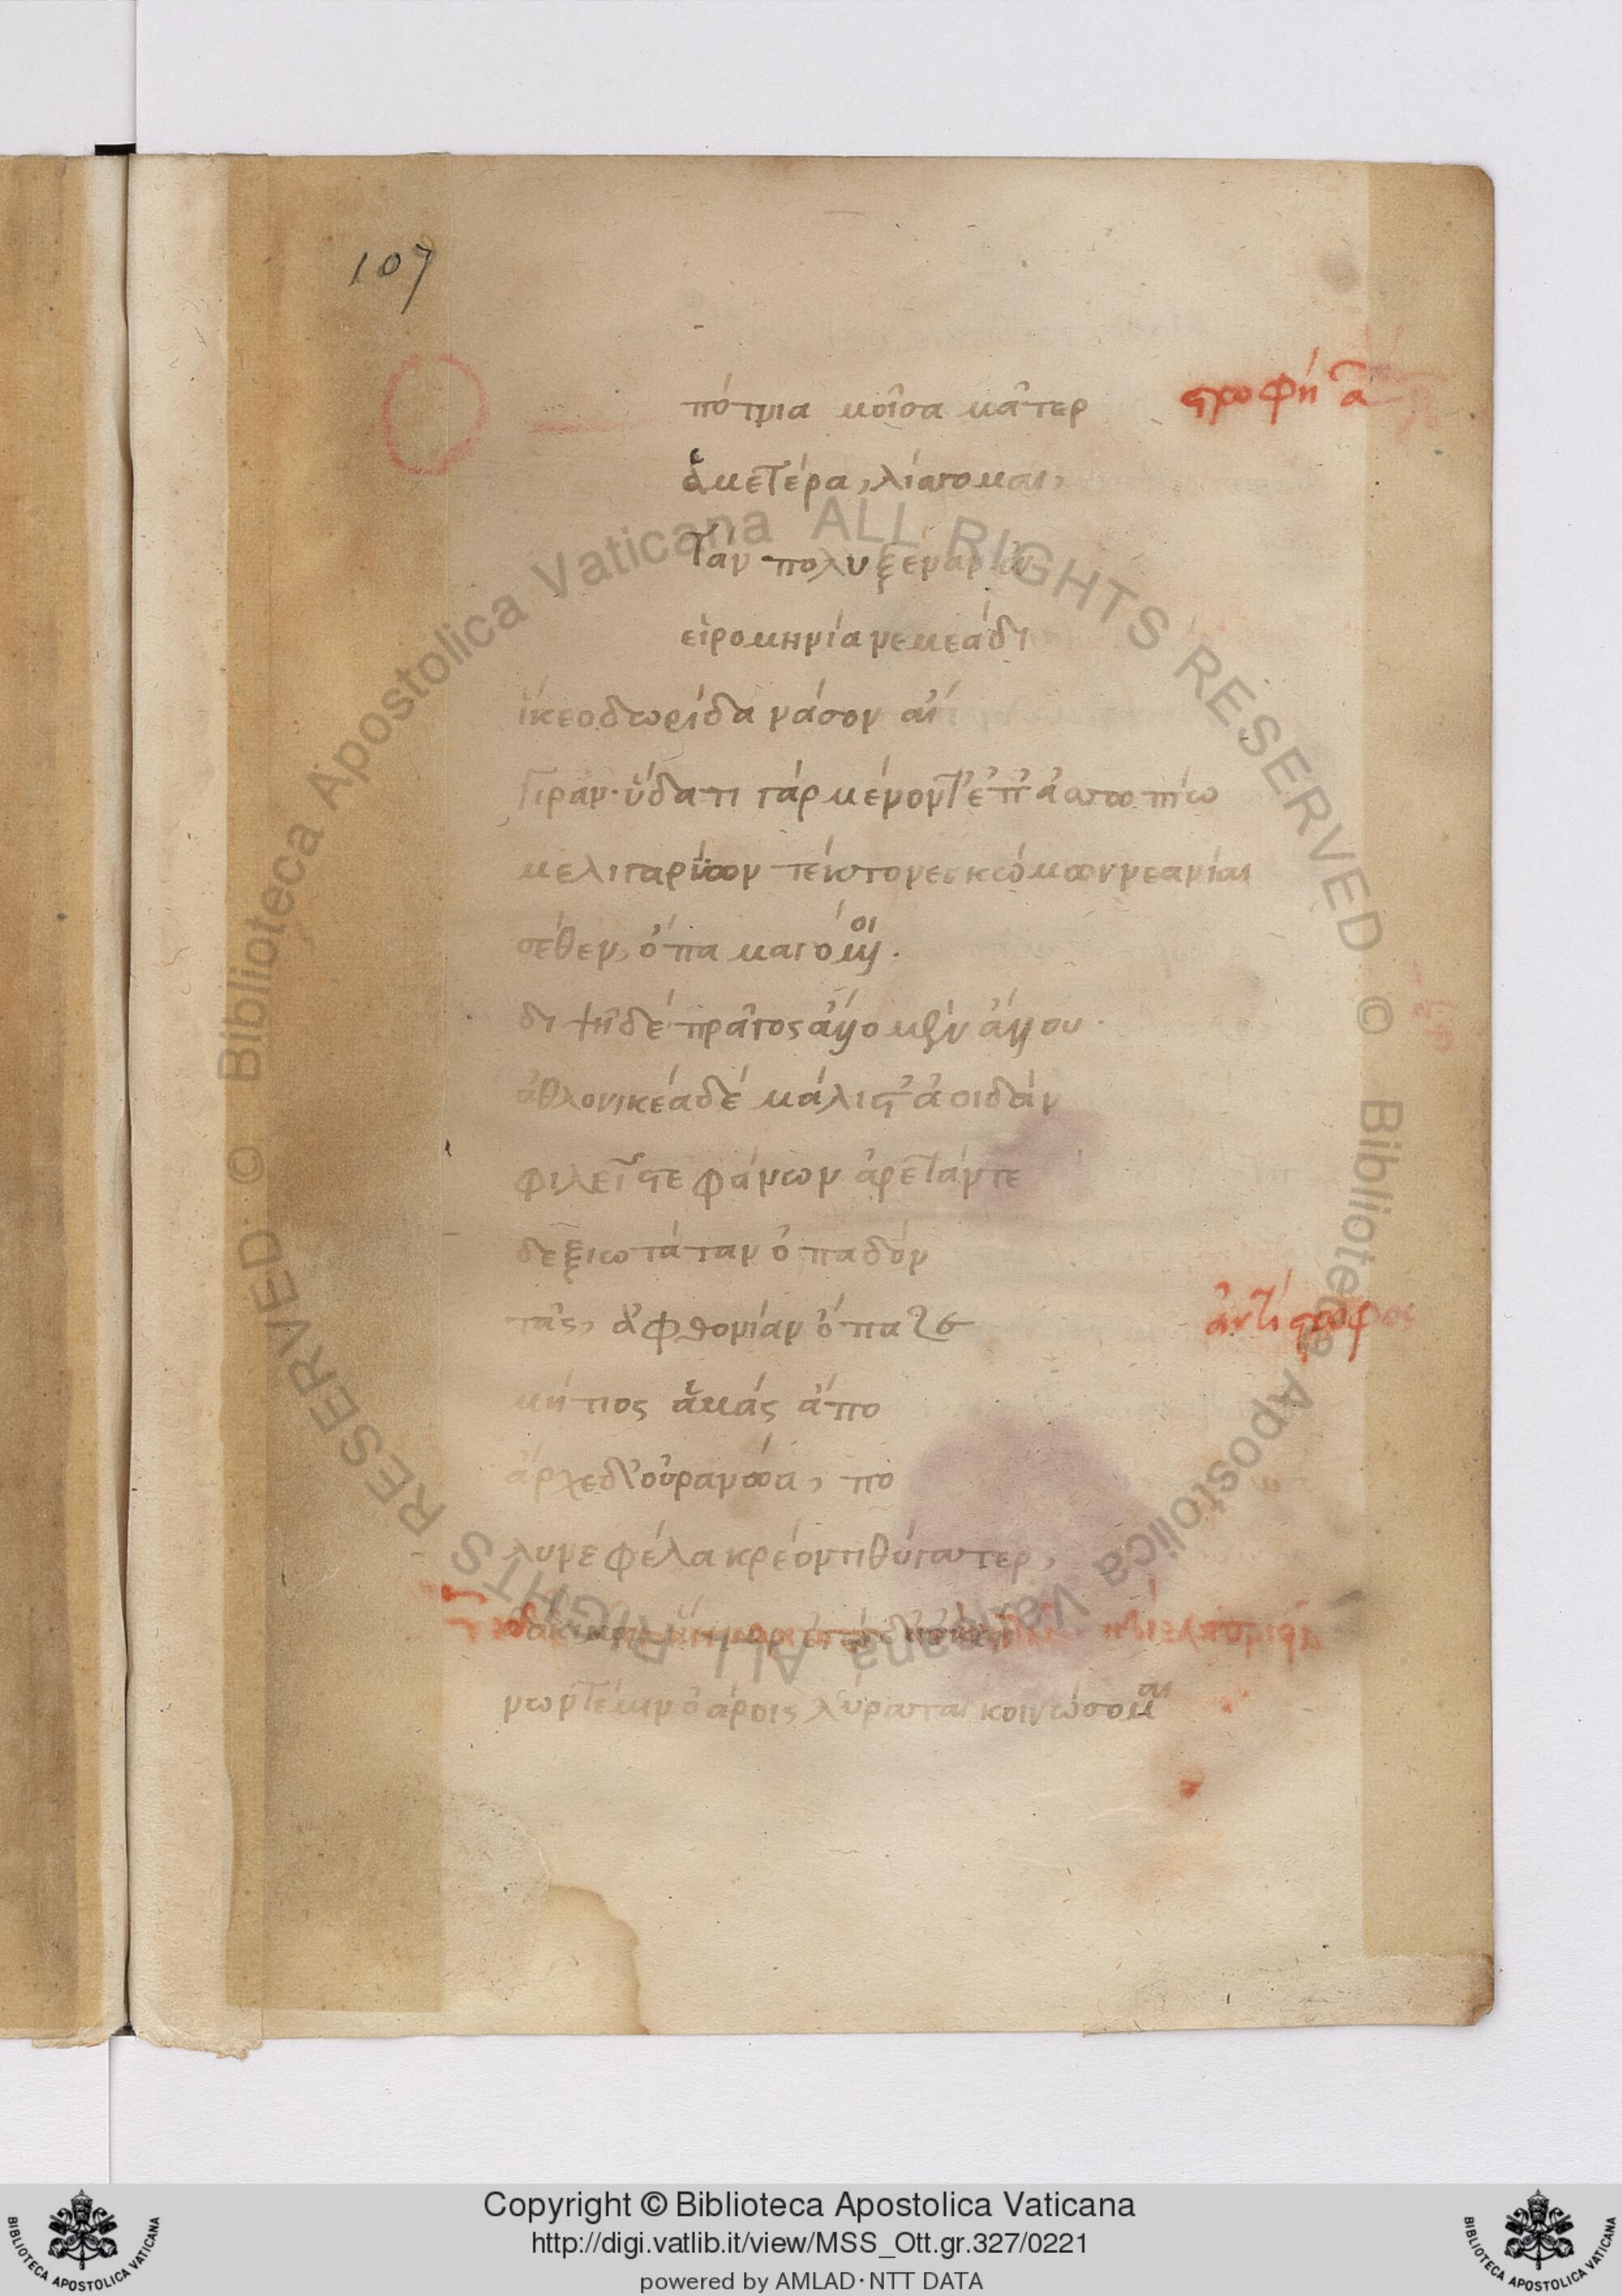 107
πότνια μοῖσα μᾶτερ στροφή α
ἁμετέρα, λίσσομαι,
Τὰν πολυξέναν ἐν
ειρομηνία νεμεάδι
ἵκεο δωρίδα νάσον αἴ
Γιναν· ὕδατι γὰρ μένοντ' ἐπ' ἀσωπίω
μελιγαρύων τέκτονες κώμων νεανίαι
σέθεν, ὄπα μαιόμνοι.
διψῆ δέ πρᾶγος ἄλλο μὲν ἄλλου·
ἀθλονικέα δέ μάλιστ' ἀοιδάν
φιλεῖ στεφάνων ἀρετάν τε
δεξιωτάταν ὀπαδόν
τᾶς, ἀφθονίαν ὄπαζε ἀντίστροφος
μήτιος ἁμάς ἄπο
ἄρχε δ' οὐρανῶα, πο
λυνεφέλα κρέοντι θύγατερ,
νων τέ μιν ὀάροις λύρα τε κοινώσομαι
Copyright © Biblioteca Apostolica Vaticana
http://digi.vatlib.it/view/MSS_Ott.gr.327/0221
powered by AMLAD·NTT DATA
BIBLIOTECA APOSTOLICA VATICANA
BIBLIOTECA APOSTOLICA VATICANA
© Biblioteca Apostolica Vaticana ALL RIGHTS RESERVED
© Biblioteca Apostolica Vaticana ALL RIGHTS RESERVED